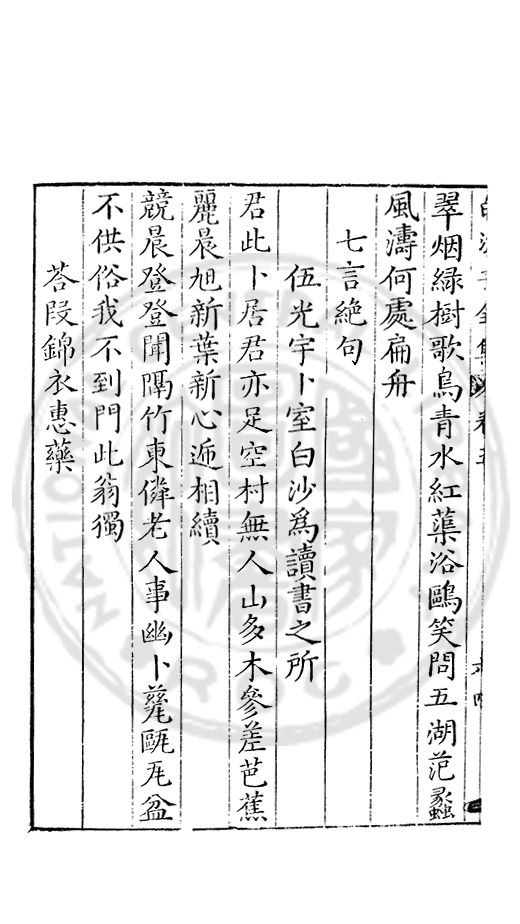 白沙子全集 卷五 六四
翠烟綠樹歌鳥青水紅蕖浴鷗笑問五湖范蠡
風濤何處扁舟
七言絶句
伍光宇卜室白沙爲讀書之所
君此卜居君亦足空村無人山多木參差芭蕉
麗晨旭新葉新心遞相續
競晨登登聞隔竹東鄰老人事幽卜甆甌瓦盆
不供俗我不到門此翁獨
荅段錦衣惠藥